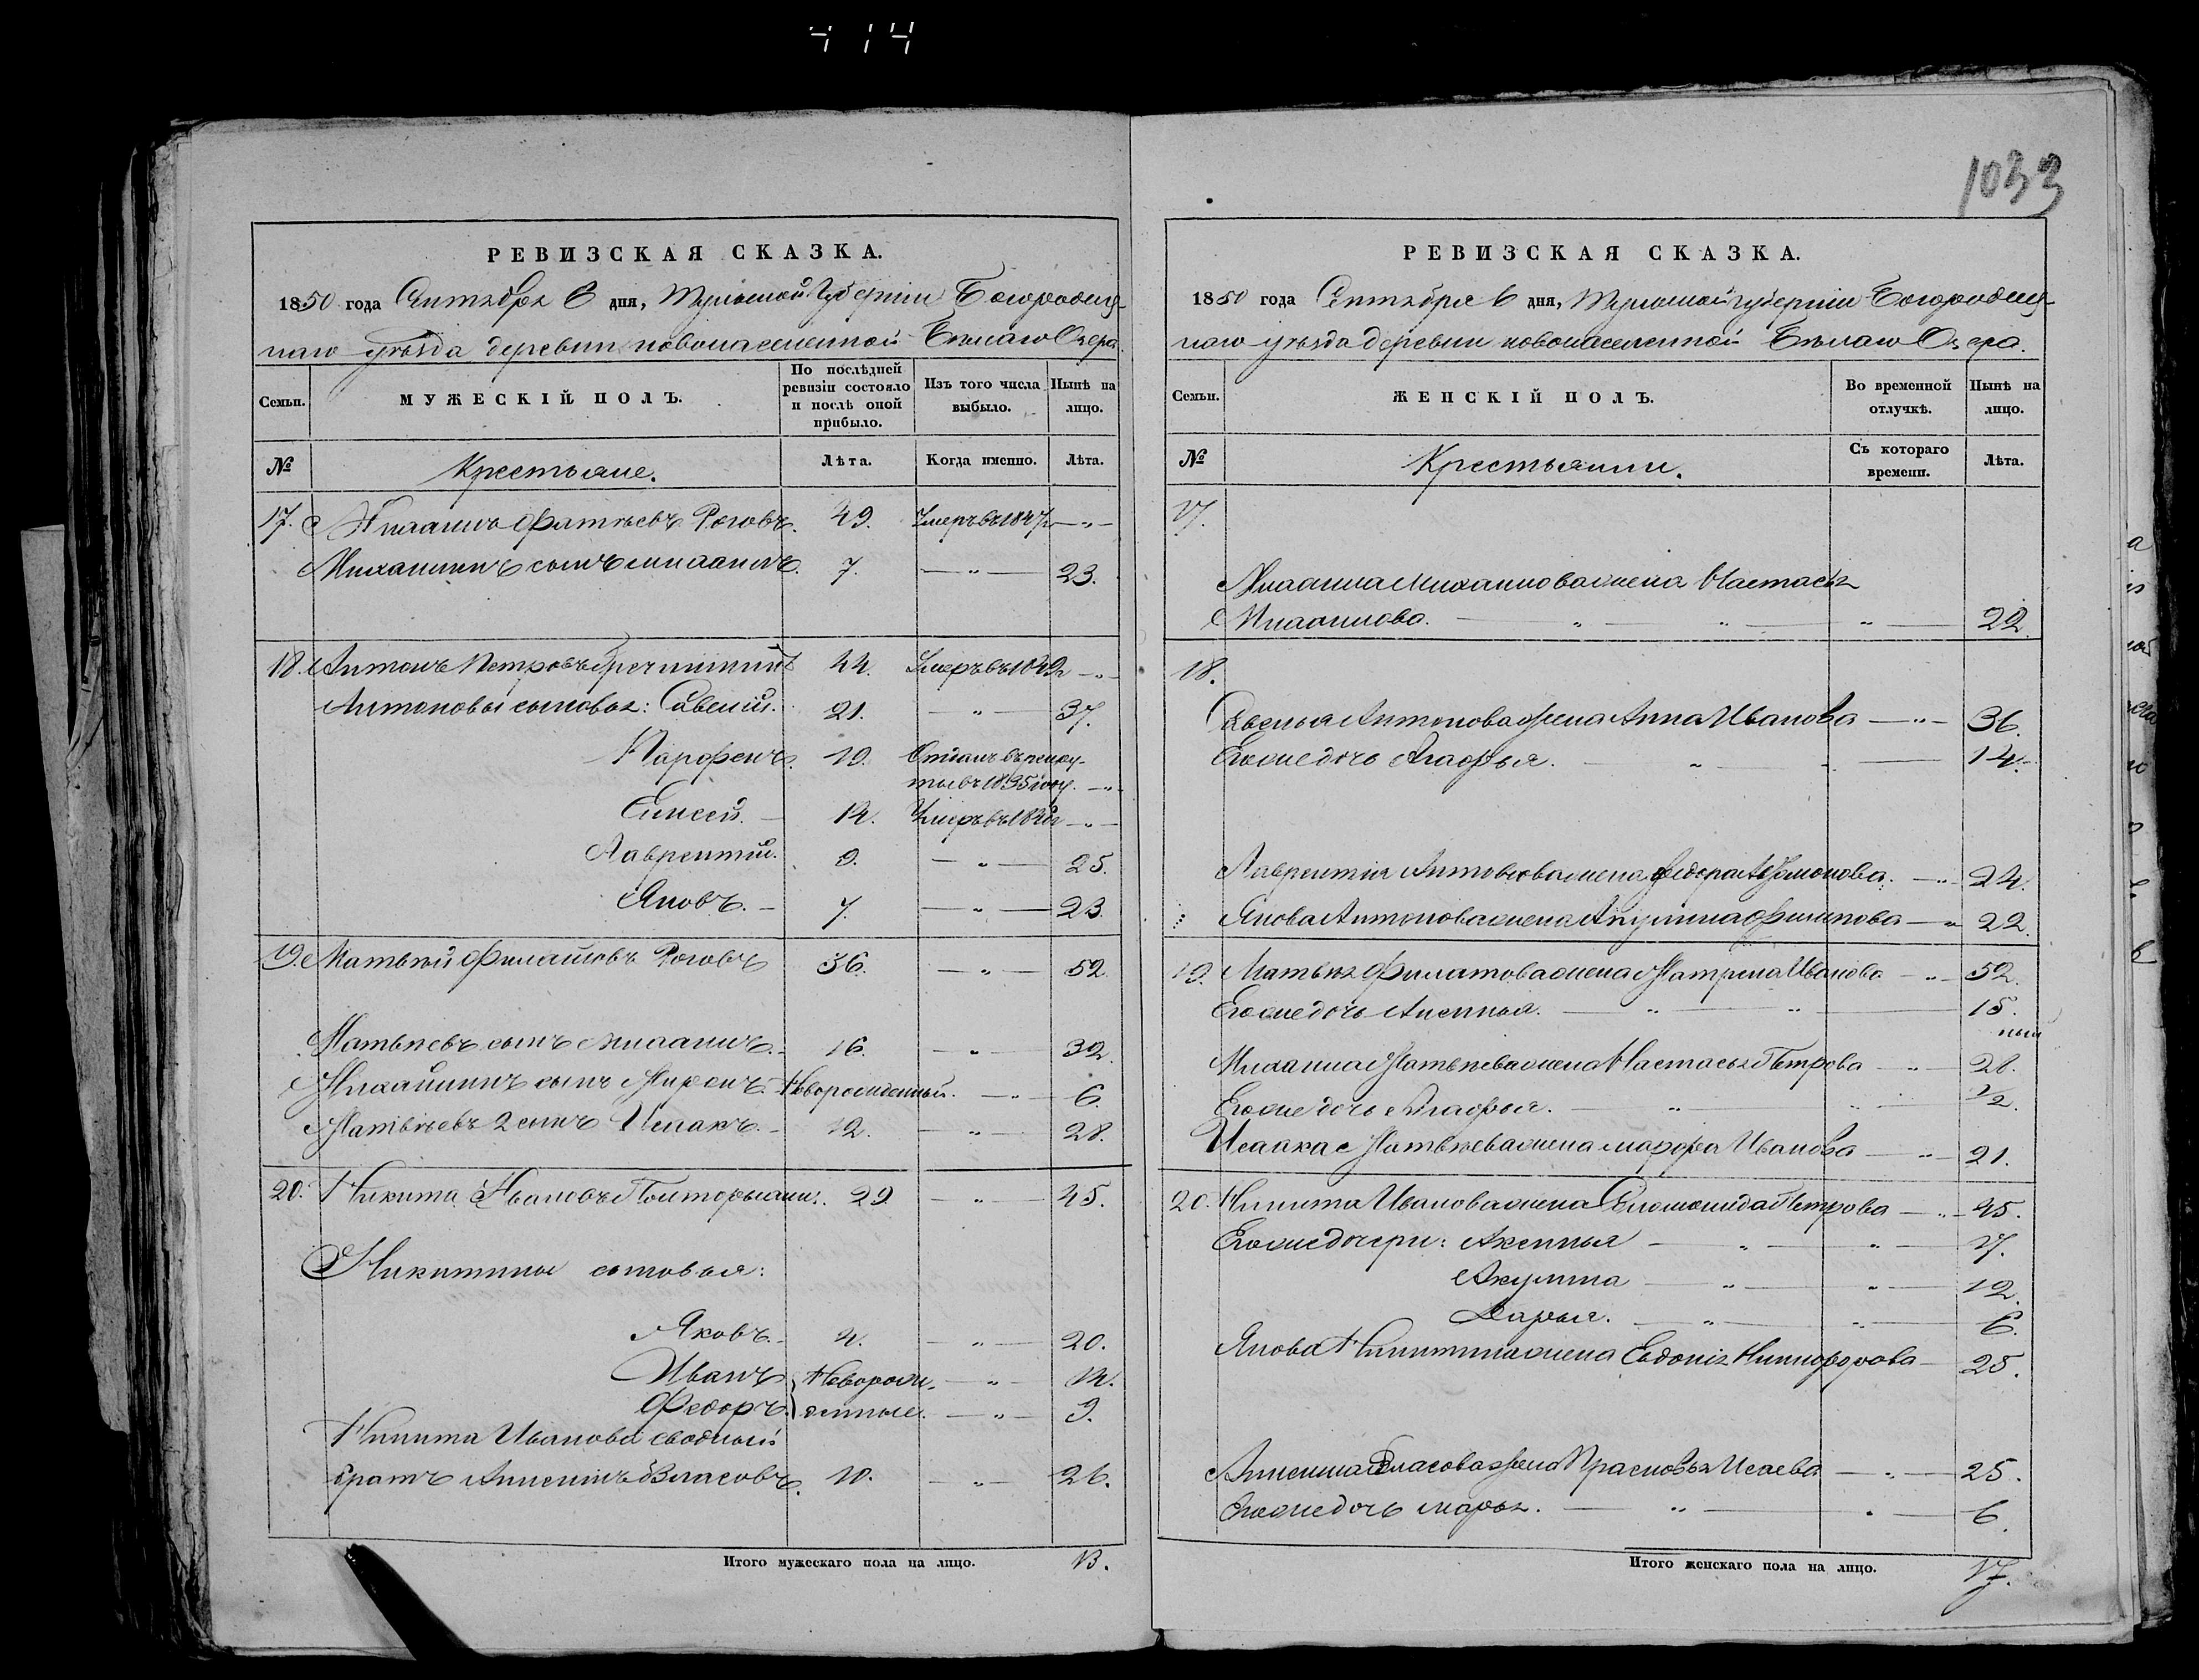 414
РЕВИЗСКАЯ СКАЗКА.
1850 года Сентября 6 дня, Тульской Губернии Богородиц-
каго уѣзда деревни новонаселенной Бѣлаго Озера.
Семьи.
МУЖЕСКІЙ ПОЛЪ.
По послѣдней ревизіи состояло и послѣ оной прибыло.
Изъ того числа выбыло.
Нынѣ на лицо.
№
Крестьяне.
Лѣта.
Когда именно.
Лѣта.
17. Михаилъ Роговъ. 49. Умеръ въ 1847 — " —
Михаиловъ сынъ Михаилъ. 7. — " — 23.
18. Антонъ Петровъ 44. Умеръ въ — " —
Антоновы сыновья: Савелій. 21. — " — 37.
Парфенъ. 19. Отданъ въ рекру-
ты въ 1835 году. — " —
Елисей. — 14. Умеръ въ — " —
Лаврентій. 9. — " — 25.
Яковъ. — 7. — " — 23.
19. Матвѣй Филатовъ Роговъ 36. — " — 52.
Матвѣевъ сынъ Михаилъ. — 16. — " — 32.
Михаиловъ сынъ Миронъ. Новорожденный. — " — 6.
Матвѣевъ 2 сынъ Исаакъ. — 12. — " — 28.
20. Никита Ивановъ 29. — " — 45.
Никитины сыновья:
Яковъ. — 4. — " — 20.
Иванъ Новорож- — " — 14.
Федоръ. денные. — " — 9.
Никита Иванова сводный
братъ Алексѣй Власовъ. 10. — " — 26.
Итого мужескаго пола на лицо. 13.
1033
РЕВИЗСКАЯ СКАЗКА.
1850 года Сентября 6 дня, Тульской губерніи Богородиц-
каго уѣзда деревни новонаселенной Бѣлаго Озера.
Семьи.
ЖЕНСКІЙ ПОЛЪ.
Во временной отлучкѣ.
Нынѣ на лицо.
№
Крестьянки.
Съ котораго времени.
Лѣта.
17.
Михаила Михаилова жена Настасья
Михаилова. — " — " — " — 22.
18.
Савелья Антонова жена Анна Иванова — " — 36.
Его же дочь Агафья. — " — 14.
Лаврентія Антонова жена Федора — " — 24.
Якова Антонова жена Акулина Филипова — " 22.
19. Матвѣя Филатова жена Матрена Иванова — " — 52.
Его же дочь Аксинья. — " — " — 15.
Михаила Матвѣева жена Настасья Петрова — " — 28.
Его же дочь Агафья. — " — " — 1/2.
Исаака Матвѣева жена Марфа Иванова — " — 21.
20. Никиты Иванова жена Петрова — " — 45.
Его же дочери: Аксинья — " — " — 17.
Акулина — " — " — 12.
Дарья. — " — " — 6.
Якова Никитина жена Евдокія Никифорова — 25.
Алексѣя Власова жена Прасковья Исаева — " — 25.
Его же дочь Марья. — " — " — 6.
Итого женскаго пола на лицо. 17.